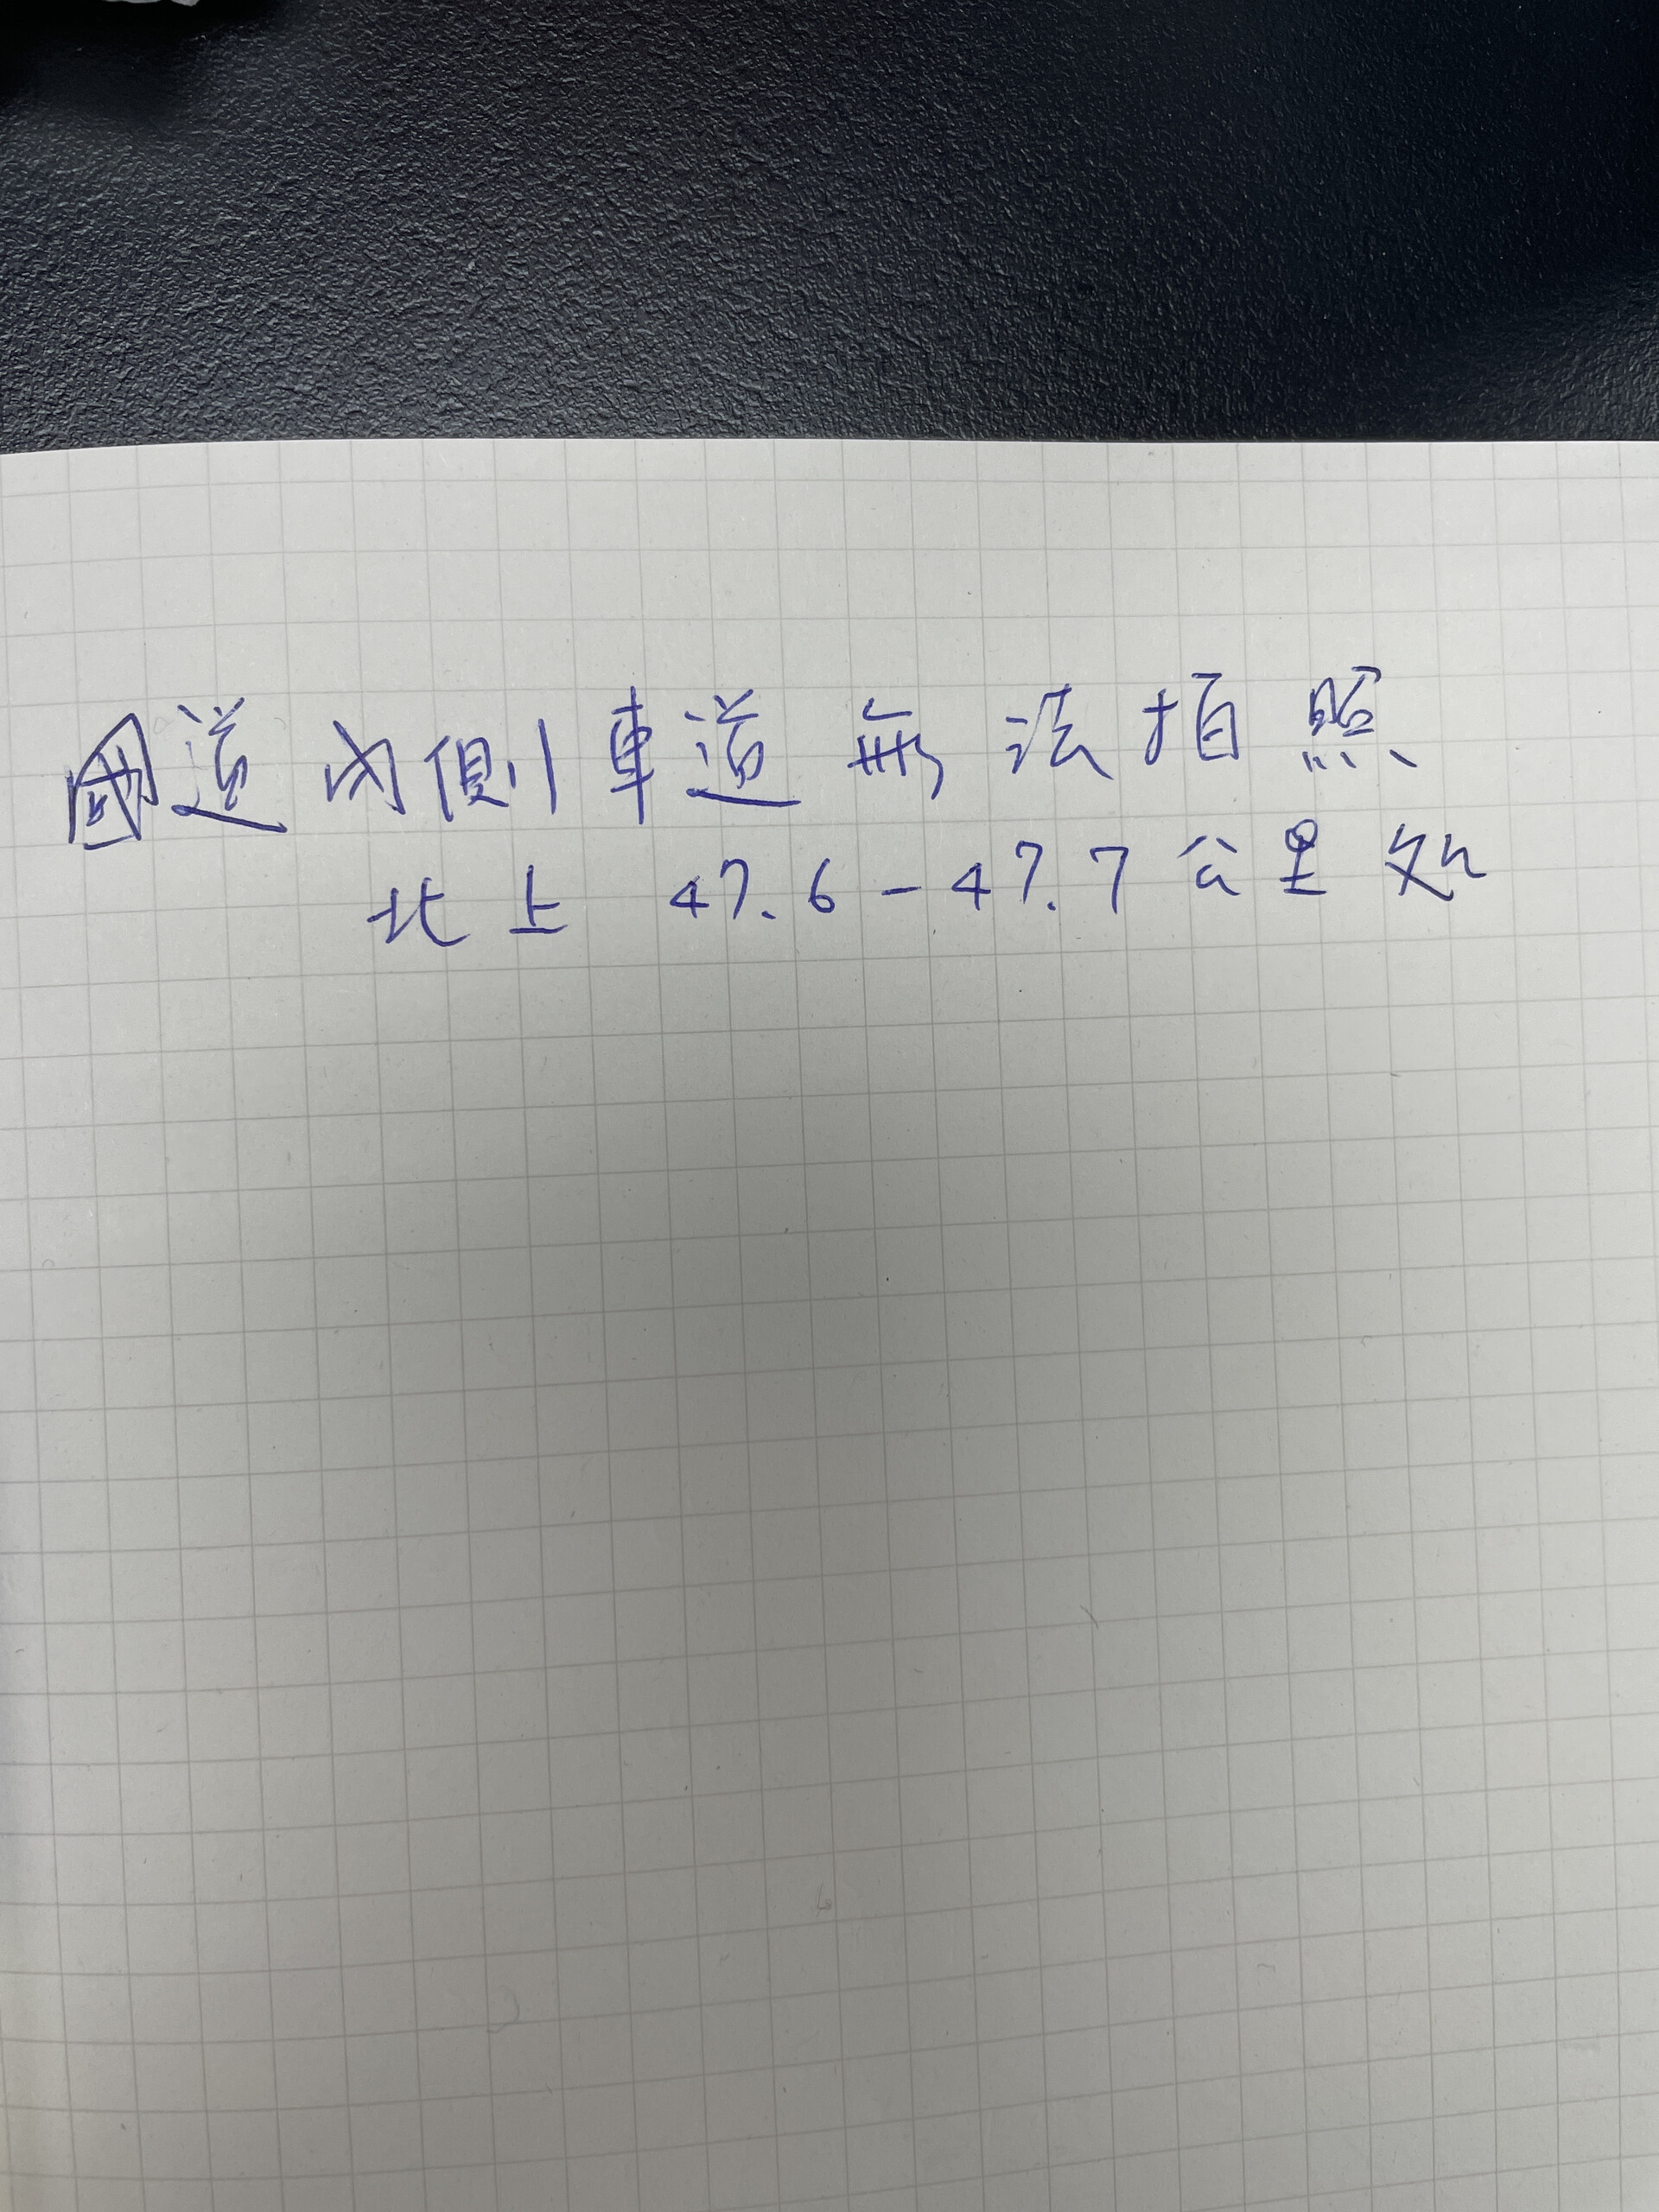 國道內側車道無法拍照
北上 47.6-47.7公里处